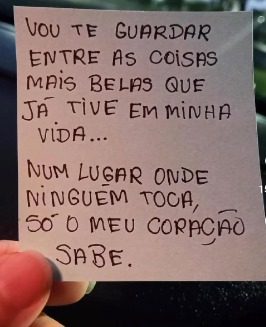 VOU TE GUARDAR
ENTRE AS COISAS
MAIS BELAS QUE
JÁ TIVE EM MINHA
VIDA...
NUM LUGAR ONDE
NINGUÉM TOCA,
SÓ O MEU CORAÇÃO
SABE.